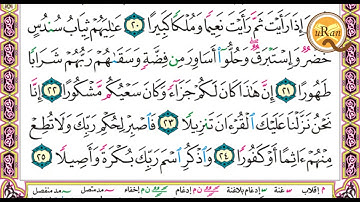 وَإِذَا رَأَيْتَ ثَمَّ رَأَيْتَ نَعِيمًا وَمُلْكًا كَبِيرًا ٢٠ عَٰلِيَهُمْ ثِيَابُ سُندُسٍ
خُضْرٌ وَإِسْتَبْرَقٌ وَحُلُّوٓا۟ أَسَاوِرَ مِن فِضَّةٍ وَسَقَىٰهُمْ رَبُّهُمْ شَرَابًا
طَهُورًا ٢١ إِنَّ هَٰذَا كَانَ لَكُمْ جَزَآءً وَكَانَ سَعْيُكُم مَّشْكُورًا ٢٢ إِنَّا
نَحْنُ نَزَّلْنَا عَلَيْكَ ٱلْقُرْءَانَ تَنزِيلًا ٢٣ فَٱصْبِرْ لِحُكْمِ رَبِّكَ وَلَا تُطِعْ
مِنْهُمْ ءَاثِمًا أَوْ كَفُورًا ٢٤ وَٱذْكُرِ ٱسْمَ رَبِّكَ بُكْرَةً وَأَصِيلًا ٢٥
uRan
م إقلاب غنة إدغام بلاغنة إدغام ن م إخفاء مد متصل مد منفصل